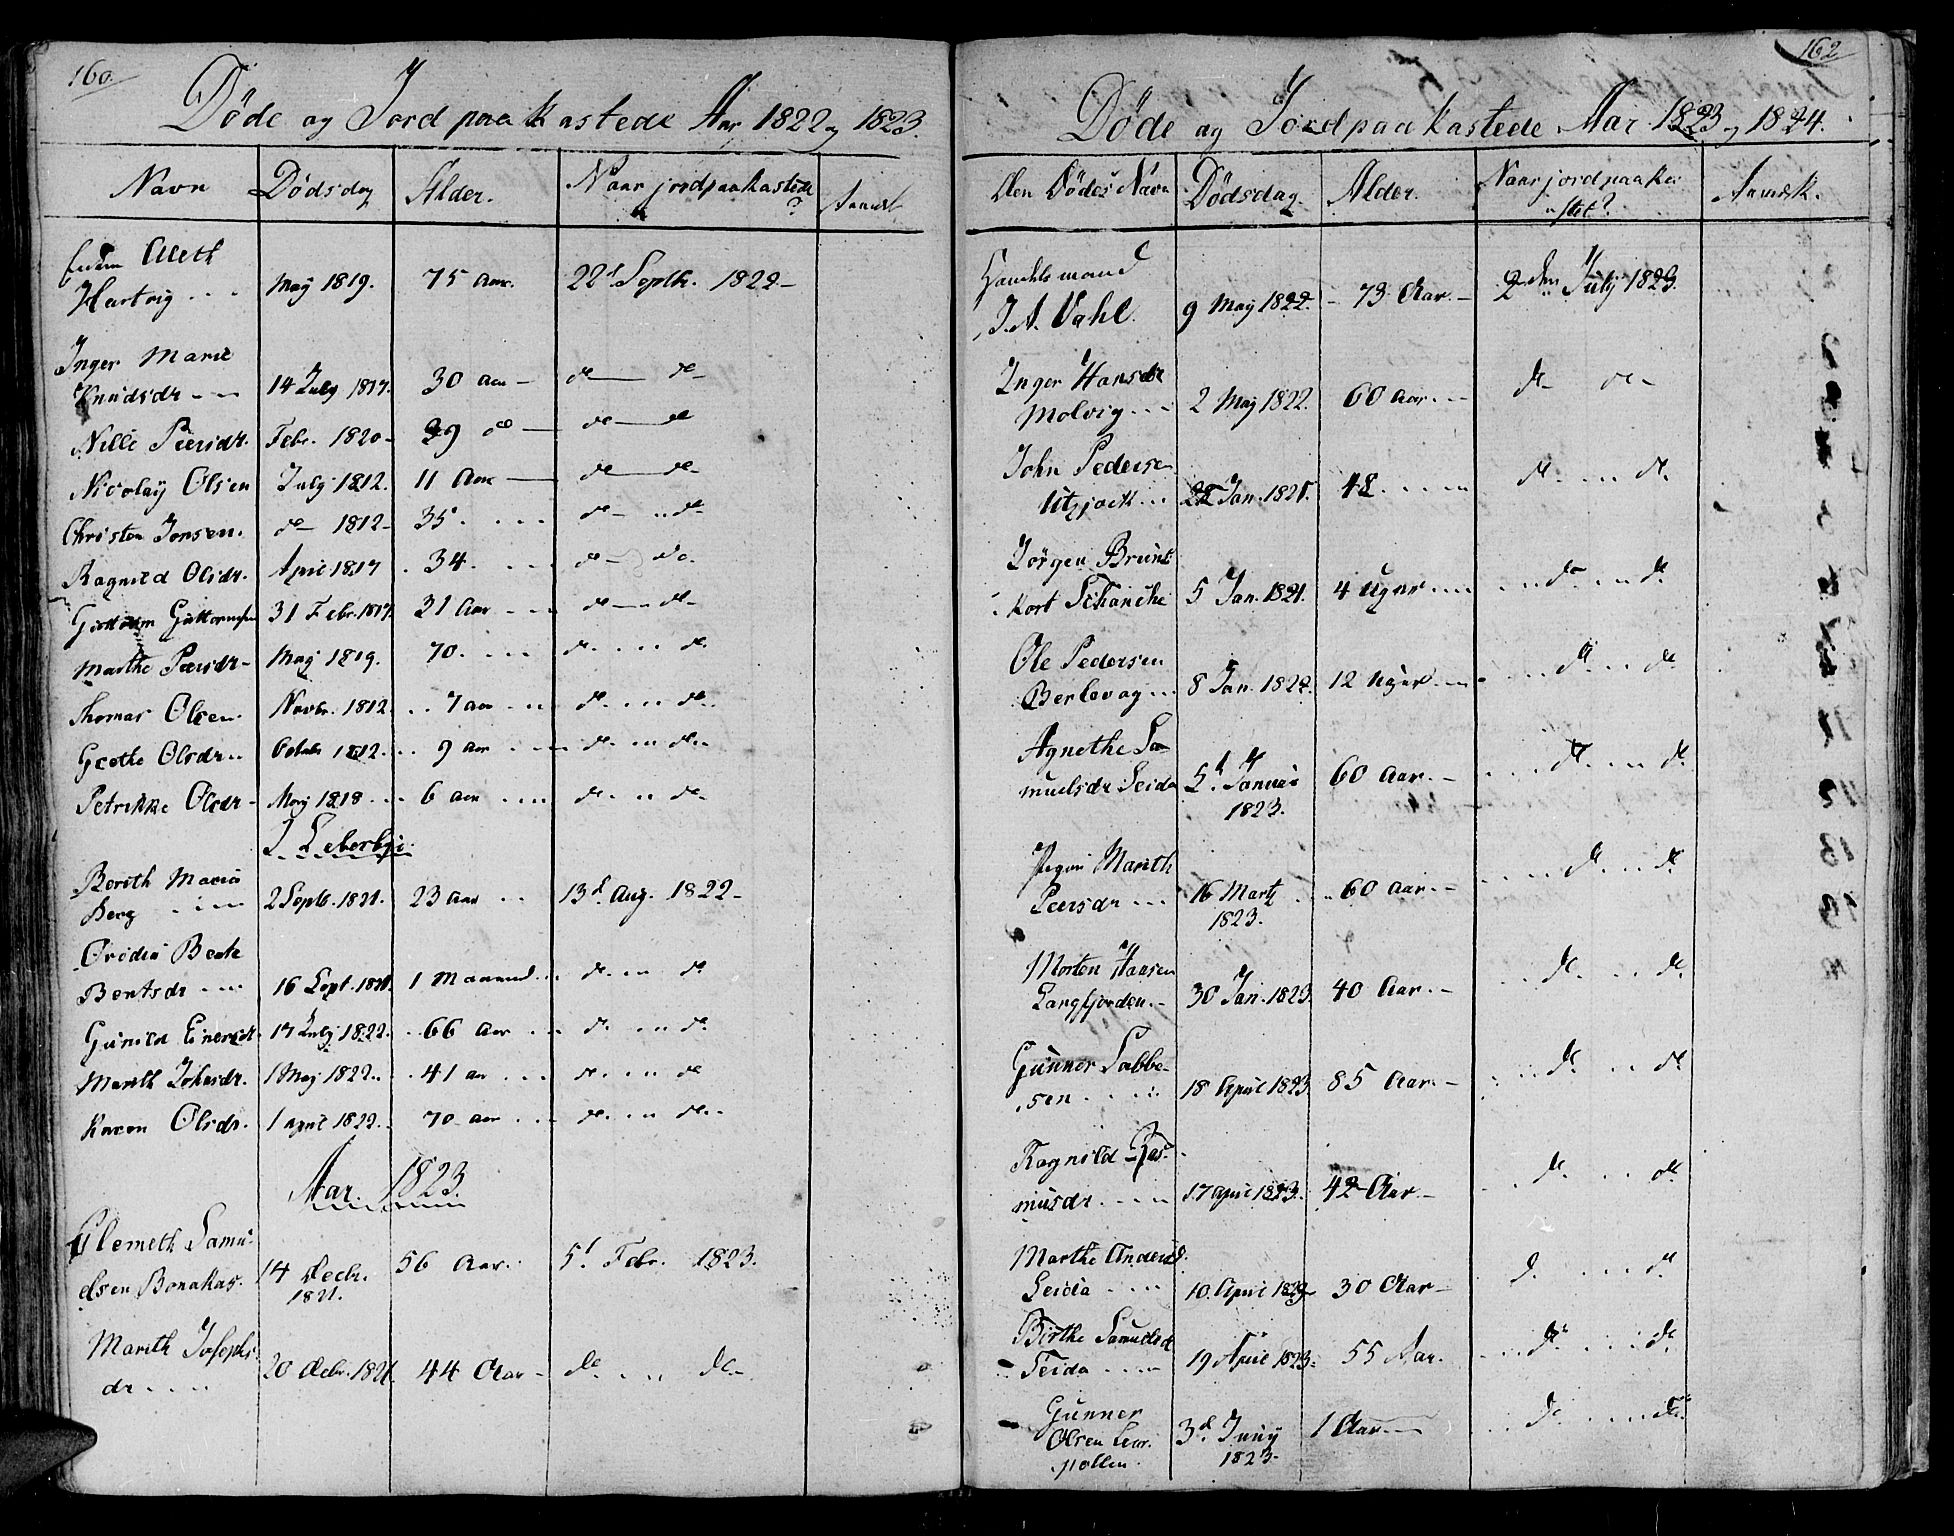 160.
Døde og Jord paakastede Aar 1822 og 1823.
Navn Dødsdag Alder. Naar jordpaakastede? Anmk
Aleth
Hartvig . . . May 1819. 75 Aar. 22d Septbr. 1822 –
Inger Marie
Knudsdr – – 14 July 1817. 30 Aar – do – do –
Nille Peersdr. Febr. 1820 – 39 do – do – do
Nicolay Olsen July 1812. 11 Aar – do – do –
Christen Jonsen. do – 1812 – 35. . . . do – do
Ragnild Olsdr. April 1817 . 34. . . . do – do.
Guttorm Guttormsen 31 Febr. 1817. 21 Aar – – do – do –
Marthe Peersdr – May 1819. 70. . . . do . . . do.
Thomas Olsen. Novbr. 1812. . . 7 aar . . . do. . . do. .
Grethe Olsdr. . October 1812. . . 9 aar . . . do. . . do. .
Petrikke Olsdr – May 1818 . . . 6 aar . . . do. . . do. –
I Leberbÿe.
Berith Maria
Berg . . . 2 Septb. 1821. 23 aar . . 13d Aug. 1822 –
Beate
Bentsdr . . . 16 Sept. 1821. 1 Maaned . . do. . . do
Gunild Einersdr. 17 July 1822. . 66 aar . . do. . . do.
Marith Johnsdr. 1 May 1822. . . 41 aar . . . do. . . do
Karen Olsdr. 1 April 1822. . . 70 aar . . . do. . . do. .
Aar. 1823.
Clemeth Samu-
elsen Bonakas. 14 Decbr. 1821. 56 Aar. . 5t Febr. 1823.
Marith Josephs
dr . . . . 20 Decbr. 1821. 44 Aar – do . . . do –
162
Døde og Jordpaakastede Aar 1823 og 1824.
Den Dødes Navn Dødsdag. Alder. Naar jordpaaka-
stet? Anmk.
Handelsmand
J. A. Vahl. 9 May 1822. – 73 Aar. – 2den July 1823.
Inger Hansdr
Molvig . . . 2 May 1822. 60 Aar . . – do – do –
John Pedersen
. . . Jan. 1821. 48. . . . do. . . . do.
Jørgen Brunt
Kort Schanche 5 Jan. 1821. 4 Uger . . . . . . do . . . do.
Ole Pedersen
Berlevog . . . 8 Jan. 1822. 12 Uger . . . . . . do . . . do.
Agnethe Sa-
muelsdr Seida 5t. Januar
1823. 60 Aar. – . . . do. . . do.
Marith
Peersdr . . . 16 Marty
1823. . . 60 Aar. – . . . do. . . do.
Morten Hansen
Langfjorden. – 30 Jan. 1823. 40 Aar. – . . do. . . do.
Gunner Sabbe-
sen . . . . 18 April 1823. 85 Aar. – . . . do. . . do
Ragnild Ras-
musdr . . . . 17 April 1823. 42 Aar – . . do. . . do
Marthe Andersd.
Seida . . . . 10. April 1823 – 30 Aar – . do. . . . do.
Birthe Samuelsdr
Seida . . . . 19 April 1823. 55 Aar. . . . do. . . . do.
Gunner
Olsen Leer-
pollen. 3d. Juny
1823. 1 Aar. – . . do. . . . do.